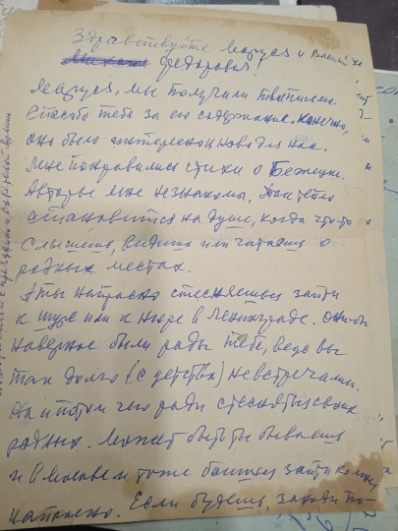 Здравствуйте Маруся и
Федоровна!
Маруся, мы получили твоё письмо.
Спасибо тебе за его содержание. Конечно,
оно было интересно и ново для нас.
Мне понравились стихи о Бежецке.
Авторы мне незнакомы. Так тепло
становится на душе, когда что-то
слышишь, видишь или читаешь о
родных местах.
А ты напрасно стесняешься зайти
к Шуре или к Нюре в Ленинграде. Они бы
наверное были рады тебе, ведь вы
так долго (с детства) не встречались.
Да и потом чего ради стесняться своих
родных. Может быть ты бываешь
и в Москве и тоже боишься зайти ко мне
напрасно. Если будешь, заходи по-